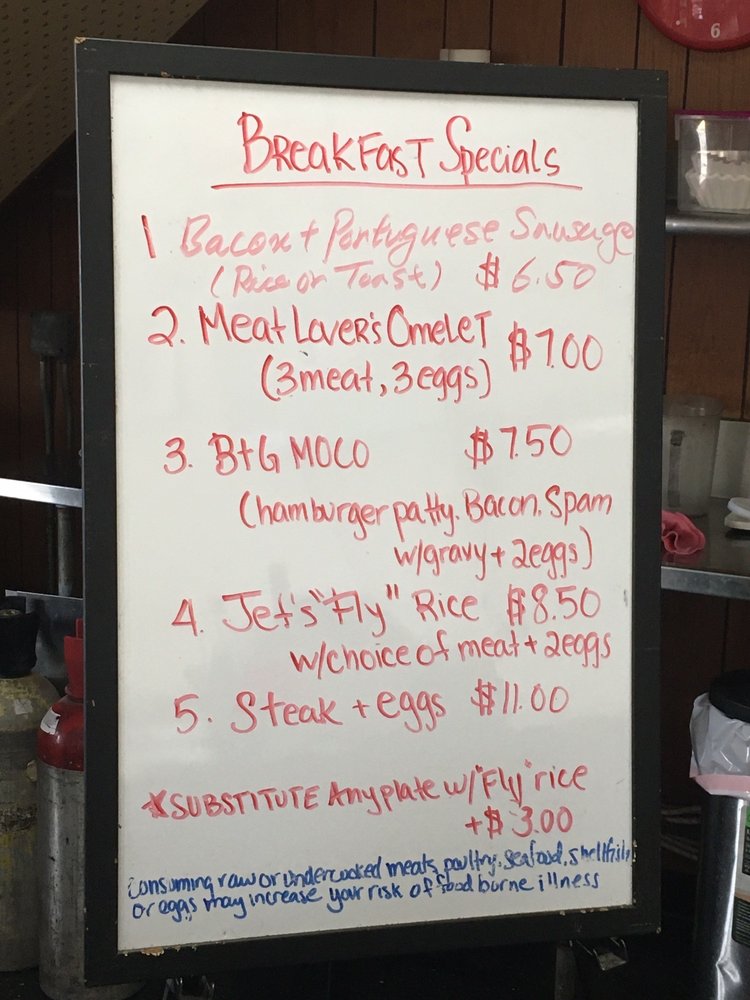 BreakFast Specials
1 Bacon + Portuguese Sausage
(Rice or Toast) $6.50
2. Meat Lover's Omelet $7.00
(3 meat, 3 eggs)
3. B+G MOCO $7.50
(hamburger patty, Bacon, Spam
w/gravy + 2eggs)
4. Jet's "Fly" Rice $8.50
w/choice of meat + 2eggs
5. Steak + eggs $11.00
*SUBSTITUTE Any plate w/ "Fly" rice
+$3.00
Consuming raw or undercooked meats, poultry, seafood, shellfish,
or eggs may increase your risk of food burne illness
6